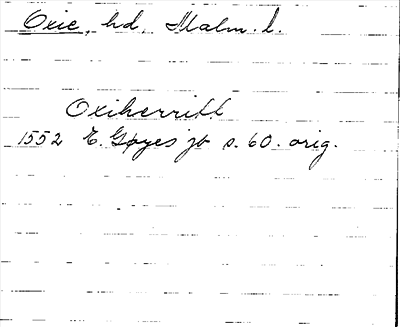 Oxie, hd, Malm. l.
Oxiherridt
1552 E. Gøyes jb s. 60. orig.